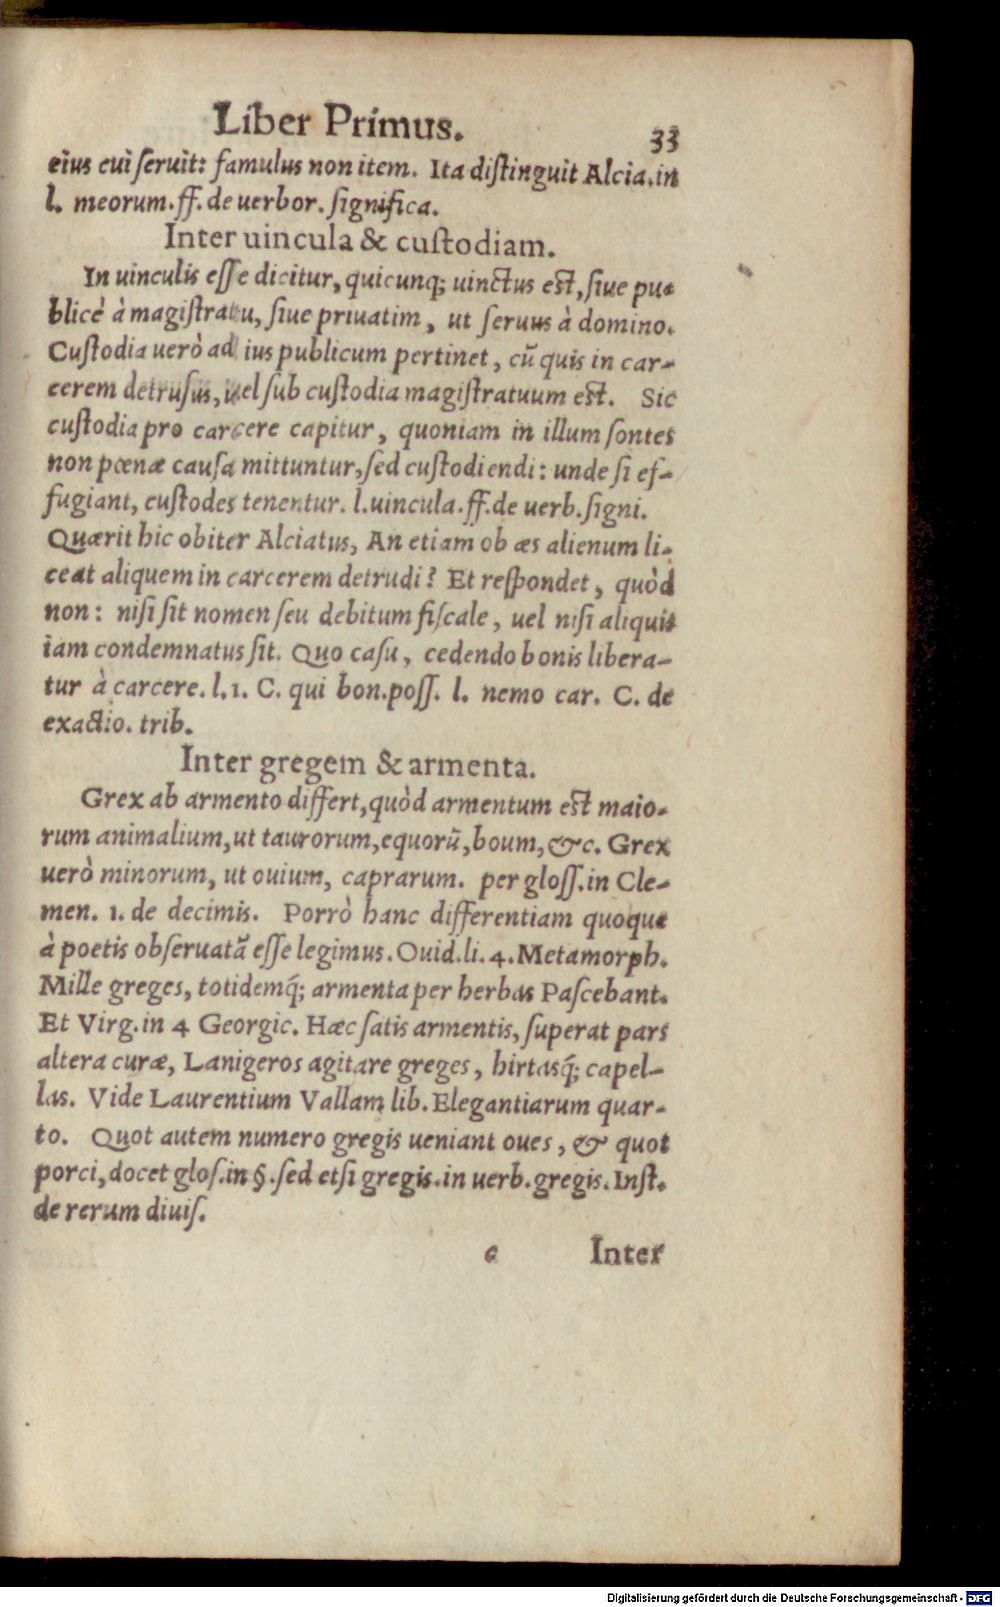 Liber Primus.
33
eius cui ſeruit: famulus non item. Ita diſtinguit Alcia. in
l. meorum. ff. de uerbor. ſignifica.
Inter uincula & cuſtodiam.
In uinculis eſſe dicitur, quicunq; uinctus eſt, ſiue pu-
blicè à magiſtratu, ſiue priuatim, ut ſeruus à domino.
Cuſtodia uerò ad ius publicum pertinet, cũ quis in car-
cerem detruſus, uel ſub cuſtodia magiſtratuum eſt. Sic
cuſtodia pro carcere capitur, quoniam in illum ſontes
non pœnæ cauſa mittuntur, ſed cuſtodiendi: unde ſi ef-
fugiant, cuſtodes tenentur. l. uincula. ff. de uerb. ſigni.
Quærit hic obiter Alciatus, An etiam ob æs alienum li-
ceat aliquem in carcerem detrudi? Et reſpondet, quòd
non: niſi ſit nomen ſeu debitum fiſcale, uel niſi aliquis
iam condemnatus ſit. Quo caſu, cedendo bonis libera-
tur à carcere. l. 1. C. qui bon. poſſ. l. nemo car. C. de
exactio. trib.
Inter gregem & armenta.
Grex ab armento differt, quòd armentum eſt maio-
rum animalium, ut taurorum, equorũ, boum, &c. Grex
uerò minorum, ut ouium, caprarum. per gloſſ. in Cle-
men. 1. de decimis. Porrò hanc differentiam quoque
à poetis obſeruatã eſſe legimus. Ouid. li. 4. Metamorph.
Mille greges, totidemq́; armenta per herbas Paſcebant.
Et Virg. in 4 Georgic. Hæc ſatis armentis, ſuperat pars
altera curæ, Lanigeros agitare greges, hirtasq́; capel-
las. Vide Laurentium Vallam lib. Elegantiarum quar-
to. Quot autem numero gregis ueniant oues, & quot
porci, docet gloſ. in §. ſed etſi gregis. in uerb. gregis. Inſt.
de rerum diuiſ.
c Inter
Digitalisierung gefördert durch die Deutsche Forschungsgemeinschaft - DFG